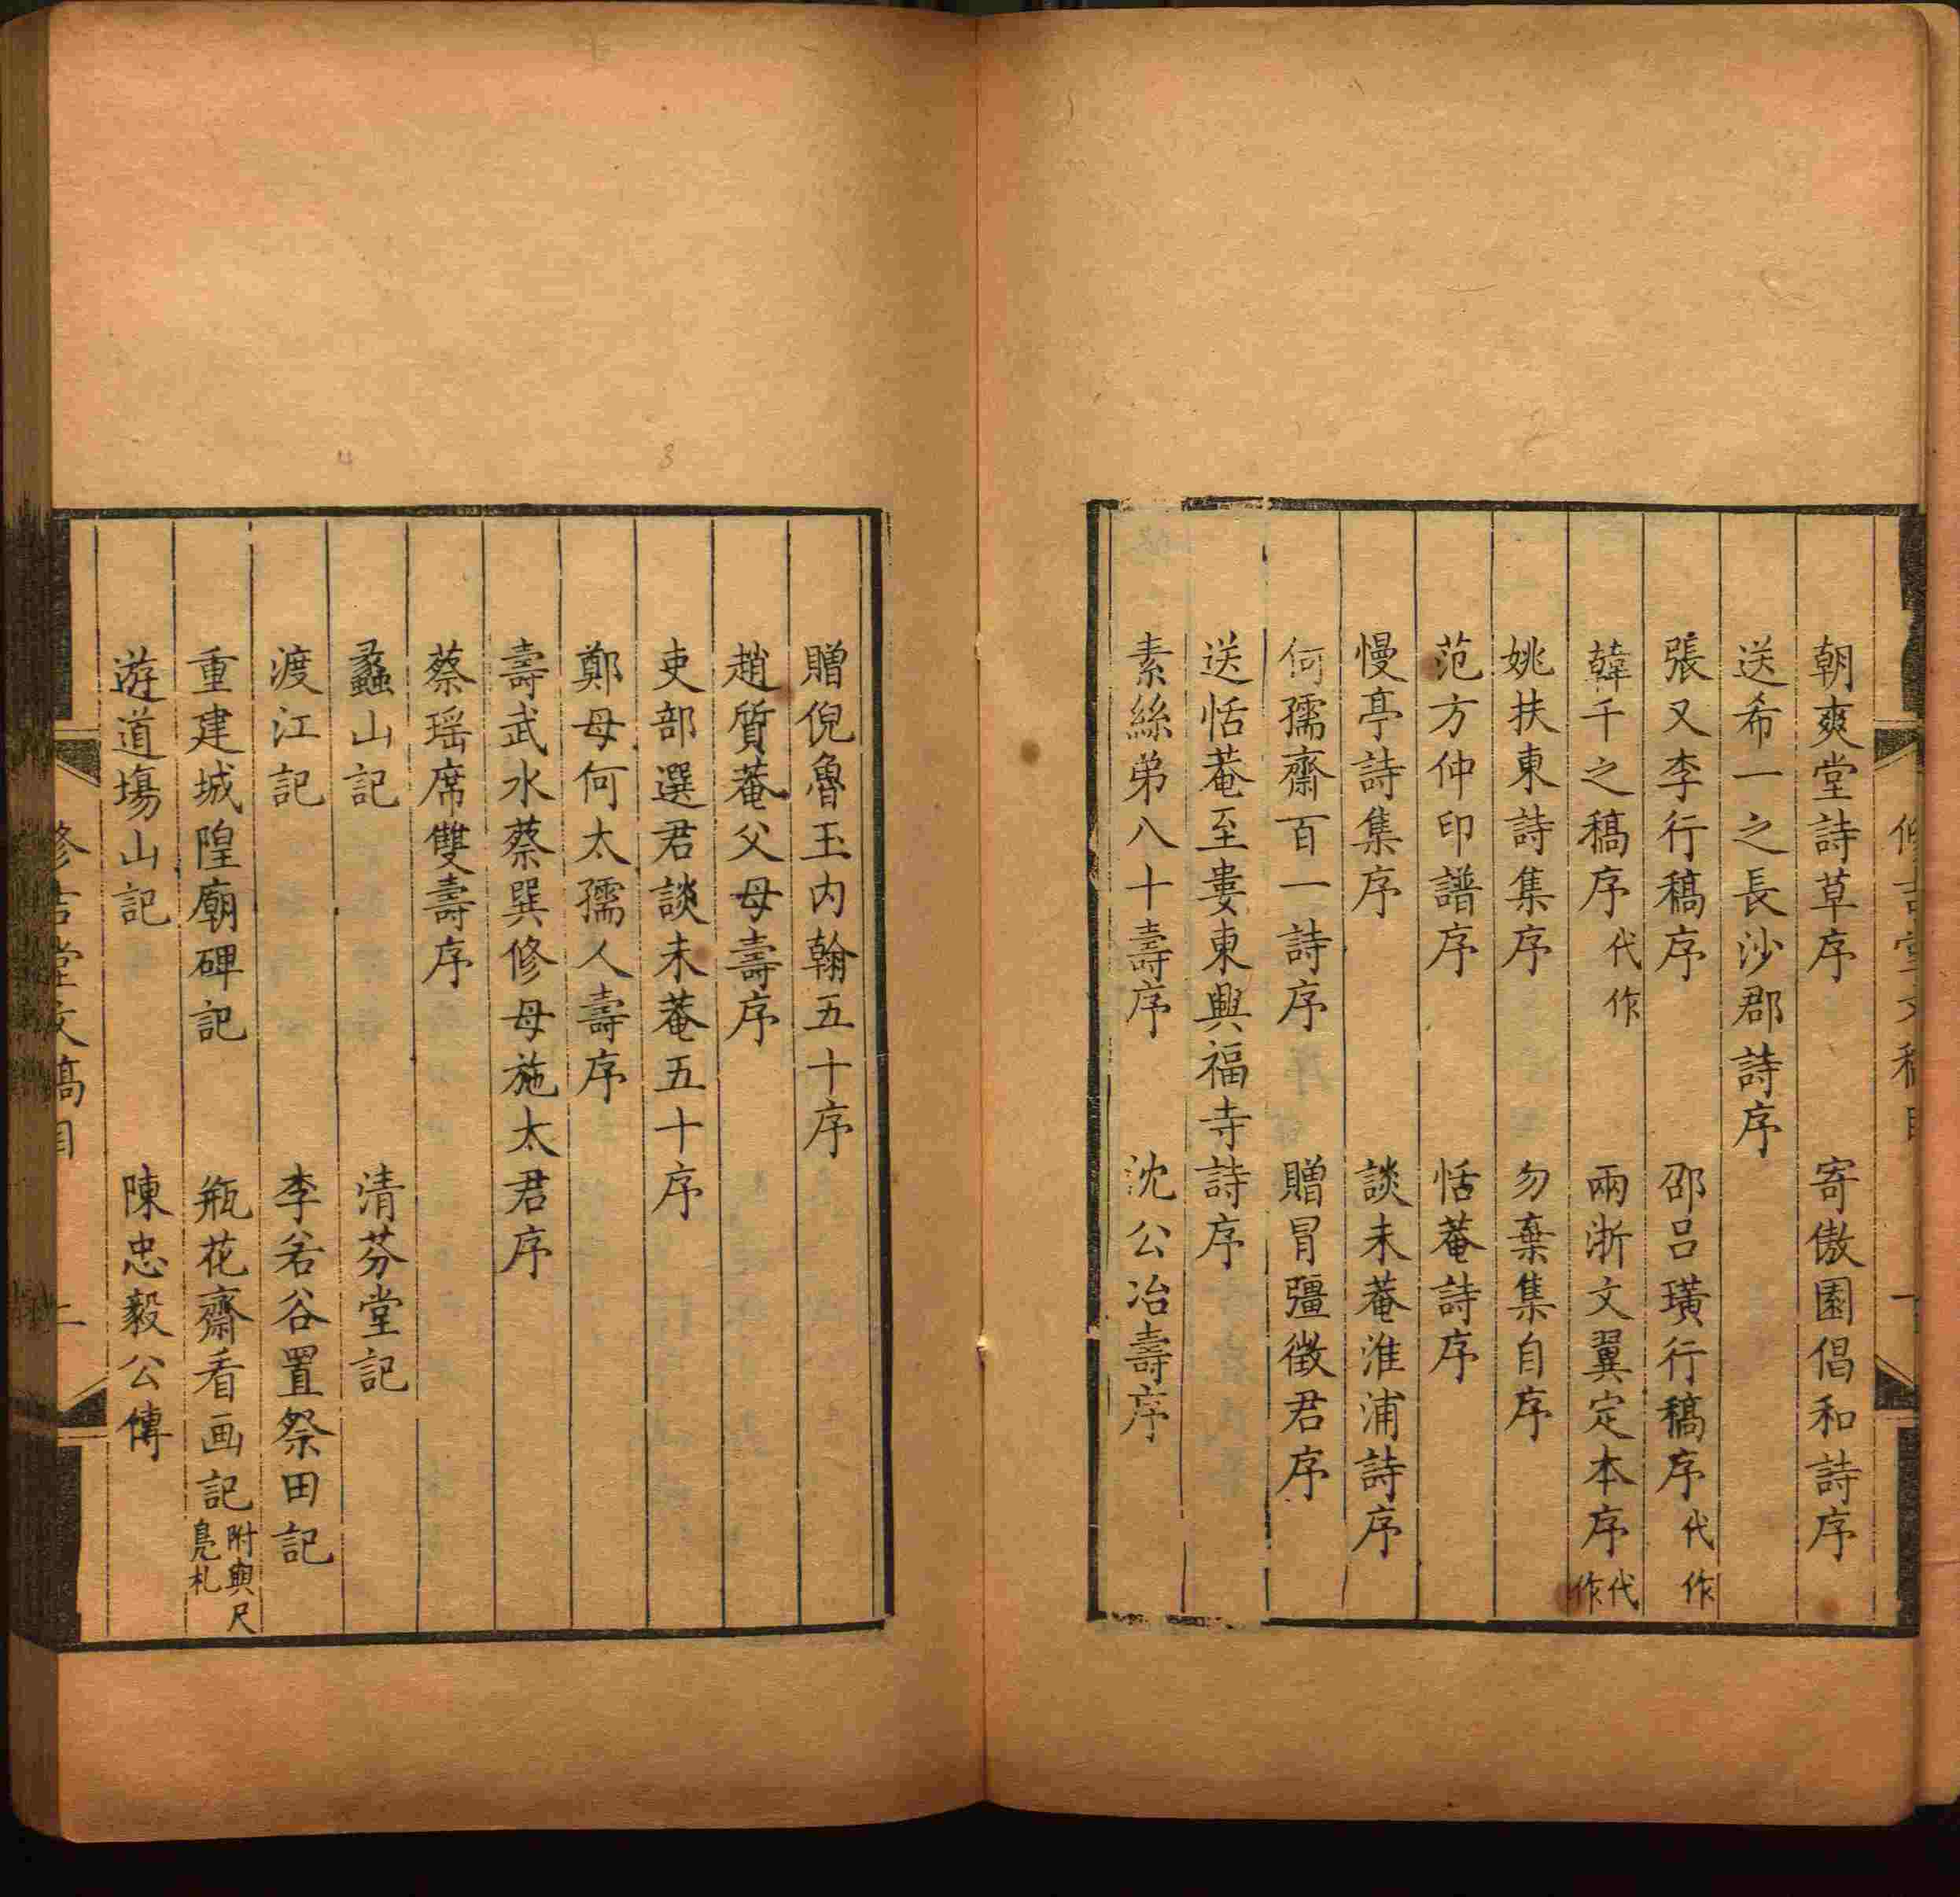 朝爽堂詩草序　寄傲園倡和詩序
送希一之長沙郡詩序
張又李行稿序　邵呂璜行稿序代作
韓千之稿序代作　兩浙文翼定本序代作
姚扶東詩集序　勿棄集自序
范方仲印譜序　恬菴詩序
慢亭詩集序　談未菴淮浦詩序
何孺齋百一詩序　贈冒彊徵君序
送恬菴至婁東興福寺詩序
素絲弟八十壽序　沈公冶壽序
贈倪魯玉内翰五十序
趙質菴父母壽序
吏部選君談未菴五十序
鄭母何太孺人壽序
壽武水蔡巽修母施太君序
蔡瑶席雙壽序
蠡山記　清芬堂記
渡江記　李若谷置祭田記
重建城隍廟碑記　瓶花齋看画記附與尺鳧札
遊道場山記　陳忠毅公傳
修吉堂文稿目　二